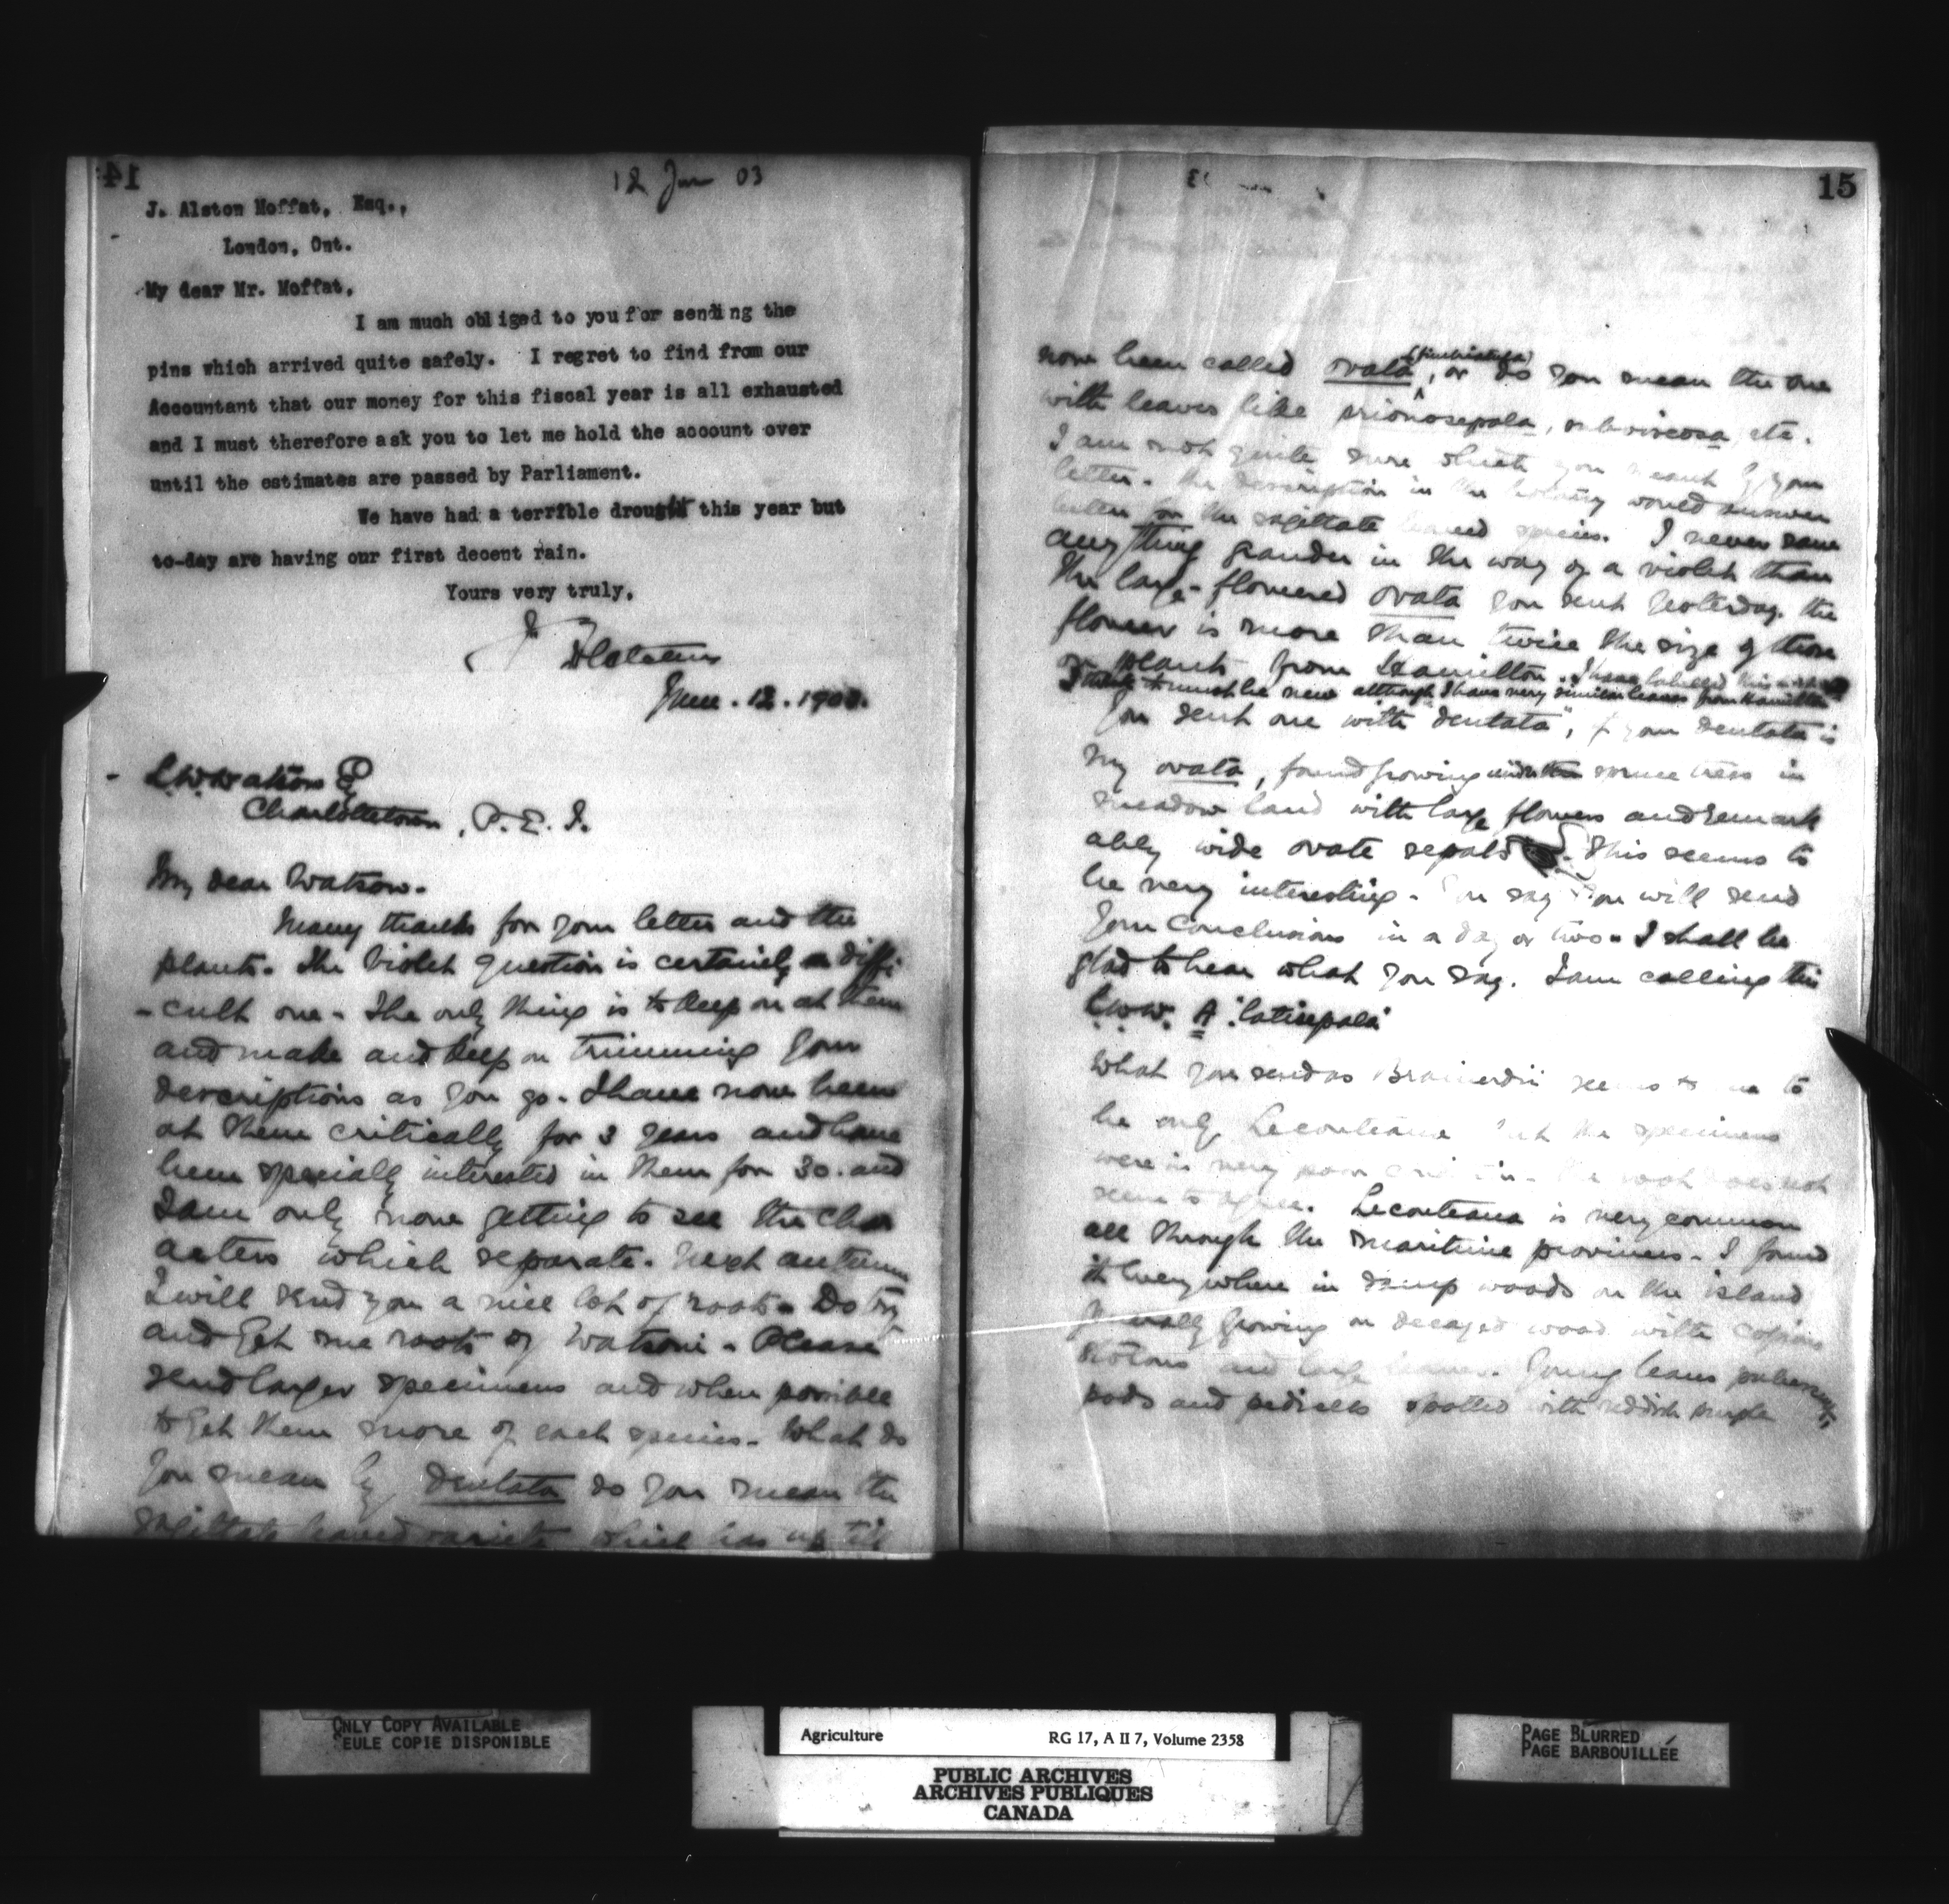 14
12 Jun 03
J. Alston Moffat, Esq.,
London, Ont.
My dear Mr. Moffat,
I am much obliged to you for sending the
pins which arrived quite safely. I regret to find from our
Accountant that our money for this fiscal year is all exhausted
and I must therefore ask you to let me hold the account over
until the estimates are passed by Parliament.
We have had a terrible drought this year but
to-day are having our first decent rain.
Yours very truly,
June. 12. 1903.
L.W. Watson
Charlottetown, P.E.I.
My dear Watson.
Many thanks for your letter and the
plants. The Violet question is certainly a diffi
-cult one - The only thing is to keep on at them
and make and keep on trimming your
descriptions as you go. I have now been
at them critically for 3 years and have
been specially interested in them for 30. and
I am only now getting to see the char
acters which separate. Next autumn
I will send you a nice lot of roots. Do try
and get me roots of Watsoni - Please
send larger specimens and when possible
to get them more of each species. What do
you mean by dentata do you mean the
sagittate leaved variety which has up till
15
now been called ovata, or do you mean the one
with leaves like prionosepala, subviscosa, etc.
I am not quite sure which you meant by your
letter. The description in the botany would answer
better for the sagittate leaved species. I never saw
anything grander in the way of a violet than
the large-flowered ovata you sent yesterday. the
flower is more than twice the size of those
on plants from Hamilton. I have labelled this
I think it must be new although I have very similar leaves from Hamilton
You sent one with "dentata", if your dentata is
my ovata, found growing under the spruce trees in
meadow land with large flowers and remark
ably wide ovate sepals. This seems to
be very interesting - You say you will send
your conclusions in a day or two. I shall be
glad to hear what you say. I am calling this
L.W.W. A 'latisepala'
What you send as Brainerdii seems to me to
be only Leconteana but the specimens
were in very poor condition. The root does not
seem to agree. Leconteana is very common
all through the maritime provinces. I found
it everywhere in damp woods on the island
generally growing on decayed wood with copious
stolons and large leaves. Young leaves pubescent,
pods and pedicels spotted with reddish purple
ONLY COPY AVAILABLE
SEULE COPIE DISPONIBLE
Agriculture RG 17, A II 7, Volume 2358
PUBLIC ARCHIVES
ARCHIVES PUBLIQUES
CANADA
PAGE BLURRED
PAGE BARBOUILLÉE